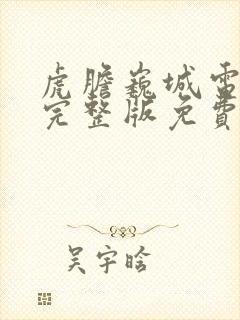 虎膽巍城電
完整版免費
吳宇晗